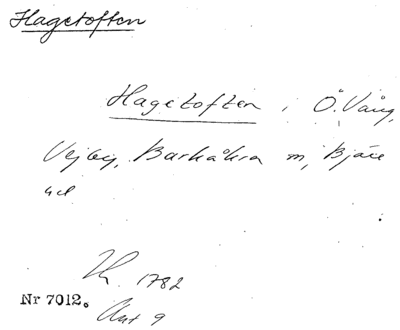 Hagetoften
Hagetoften i Ö. Vång,
Vejby, Barkåkra m, Bjäre
hd
1782
Nr 7012.
Akt 9